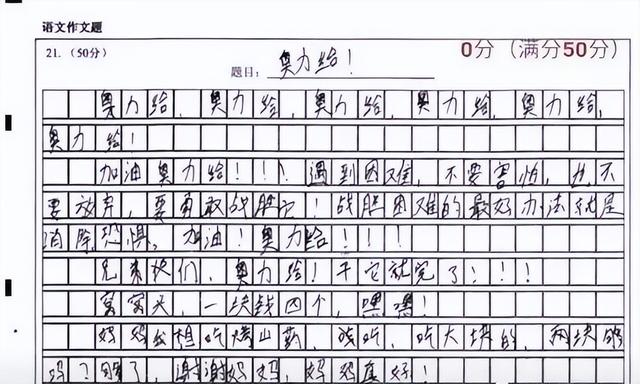 语文作文题
21.（50分）
题目：奥力给！
0分（满分50分）
奥力给，奥力给，奥力给，奥力给，奥力给，
奥力给！
加油奥力给！！！遇到困难，不要害怕，也不
要放弃，要勇敢战胜它！战胜困难的最好办法就是
消除恐惧，加油！奥力给！！！！
兄弟们，奥力给！干它就完了！！！！
窝窝头，一块钱四个，嘿嘿！
妈妈我想吃烤山药，我吃，吃大块的，两块够
吗？够了，谢谢妈妈，妈妈真好！